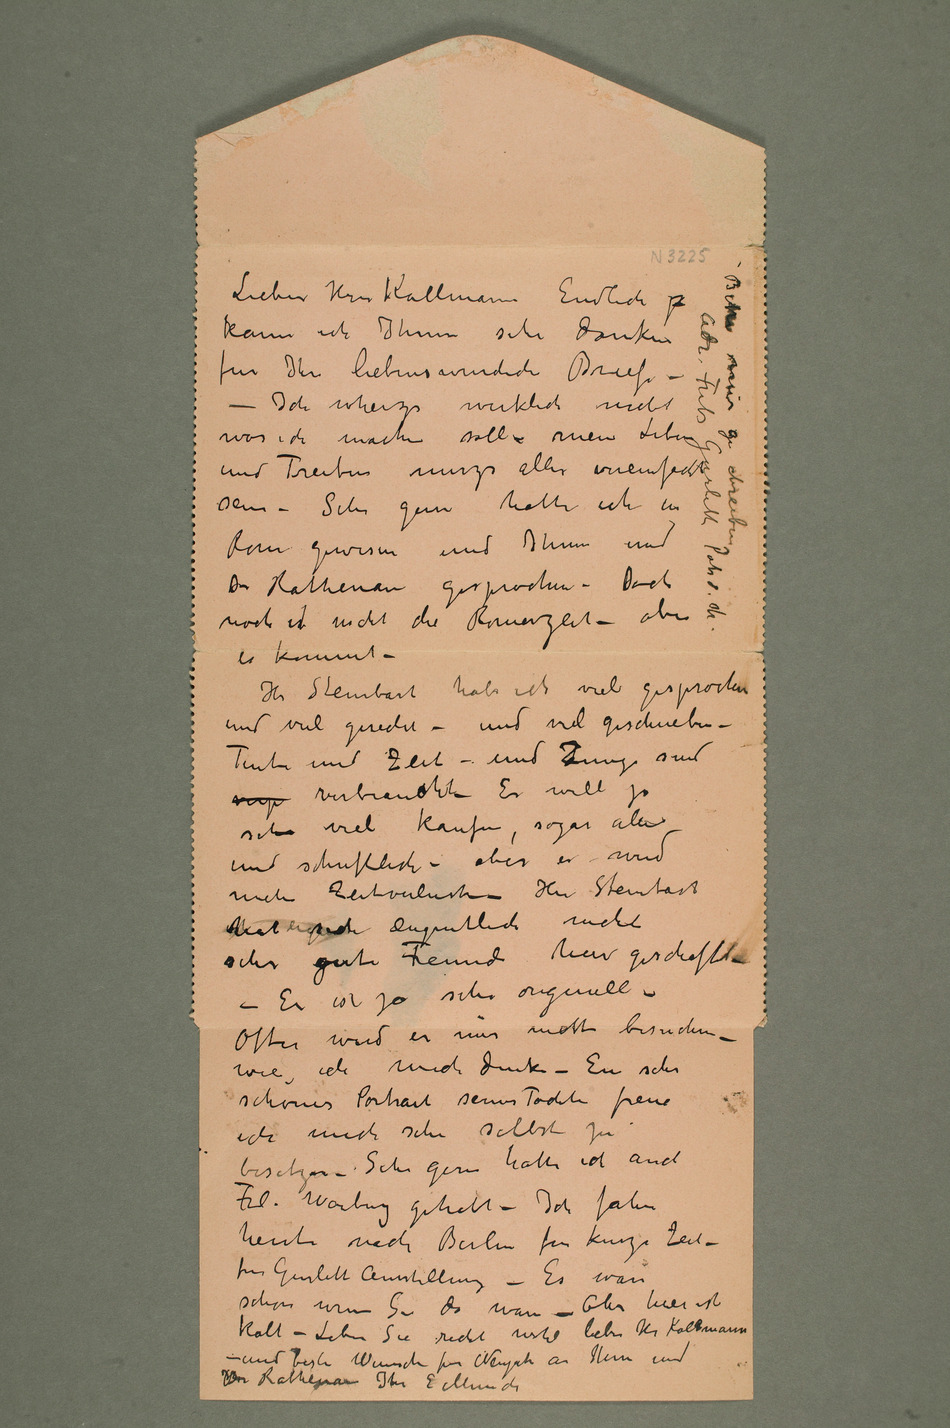 N3225
Lieber Herr Kollmann Endlich
kann ich Ihnen sehr danken
für Ihr liebenswürdige Brief –
– Ich wirklich nicht
was ich machen soll – mein Leben
und Treiben alles vereinfacht
sein – Sehr gern hatte ich in
Rom gewesen und Ihnen und
Dr Rathenau gesprochen – Doch
noch ist nicht die Romerzeit – aber
es kommt –
Hr Steinbart habe ich viel gesprochen
und viel geredet – und viel geschrieben –
Tinte und Zeit – und Zunge sind
verbraucht Er will ja
sehr viel kaufen, sogar alles
und schriftlich – aber es wird
mehr Zeitverlust – Herr Steinbart
hat eigentlich nicht
sehr gute Freunde hier geschafft –
– Er ist ja sehr originell –
Ofter wird er mir nicht besuchen –
wie ich mich denke – Ein sehr
schönes Portrait seines Tochter freue
ich mich sehr selbst zu
besitzen – Sehr gern hatte ich auch
Frl. Warburg gehabt – Ich fahre
heute nach Berlin für kurze Zeit –
für Gurlitt Ausstellung – Es wäre
schön wenn Sie da waren – Aber hier ist
kalt – Leben Sie recht wohl lieber Hr Kollmann
– und beste Wünsche für Neujahr an Ihnen und
Dr Rathenau Ihr E Munch
Bitte mir zu schreiben
Adr. Fritz Gurlitt Potsd. str.